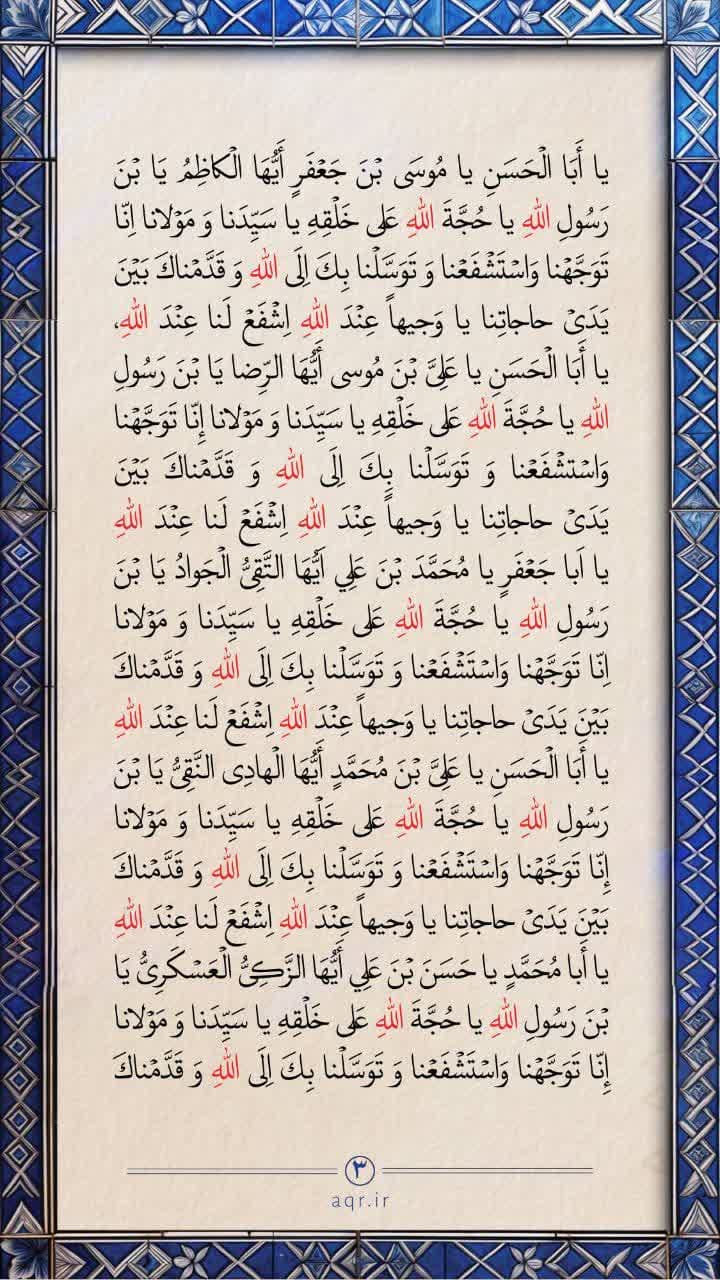 يا أَبَا الْحَسَنِ يا مُوسَى بْنَ جَعْفَرٍ أَيُّهَا الْكاظِمُ يَا بْنَ
رَسُولِ اللهِ يا حُجَّةَ اللهِ عَلى خَلْقِهِ يا سَيِّدَنا وَ مَوْلانا اِنّا
تَوَجَّهْنا وَاسْتَشْفَعْنا وَ تَوَسَّلْنا بِكَ اِلَى اللهِ وَ قَدَّمْناكَ بَيْنَ
يَدَىْ حاجاتِنا يا وَجيهاً عِنْدَ اللهِ اِشْفَعْ لَنا عِنْدَ اللهِ،
يا أَبَا الْحَسَنِ يا عَلِىَّ بْنَ مُوسى أَيُّهَا الرِّضا يَا بْنَ رَسُولِ
اللهِ يا حُجَّةَ اللهِ عَلى خَلْقِهِ يا سَيِّدَنا وَ مَوْلانا إِنّا تَوَجَّهْنا
وَاسْتشْفَعْنا وَ تَوَسَّلْنا بِكَ اِلَى اللهِ وَ قَدَّمْناكَ بَيْنَ
يَدَىْ حاجاتِنا يا وَجيهاً عِنْدَ اللهِ اِشْفَعْ لَنا عِنْدَ اللهِ
يا اَبا جَعْفَرٍ يا مُحَمَّدَ بْنَ عَلِي اَيُّهَا التَّقِىُّ الْجَوادُ يَا بْنَ
رَسُولِ اللهِ يا حُجَّةَ اللهِ عَلى خَلْقِهِ يا سَيِّدَنا وَ مَوْلانا
اِنّا تَوَجَّهْنا وَاسْتَشْفَعْنا وَ تَوَسَّلْنا بِكَ اِلَى اللهِ وَ قَدَّمْناكَ
بَيْنَ يَدَىْ حاجاتِنا يا وَجيهاً عِنْدَ اللهِ اِشْفَعْ لَنا عِنْدَ اللهِ
يا أَبَا الْحَسَنِ يا عَلِىَّ بْنَ مُحَمَّدٍ أَيُّهَا الْهادِى النَّقِىُّ يَا بْنَ
رَسُولِ اللهِ يا حُجَّةَ اللهِ عَلى خَلْقِهِ يا سَيِّدَنا وَ مَوْلانا
إِنّا تَوَجَّهْنا وَاسْتَشْفَعْنا وَ تَوَسَّلْنا بِكَ اِلَى اللهِ وَ قَدَّمْناكَ
بَيْنَ يَدَىْ حاجاتِنا يا وَجيهاً عِنْدَ اللهِ اِشْفَعْ لَنا عِنْدَ اللهِ
يا أَبا مُحَمَّدٍ يا حَسَنَ بْنَ عَلِي أَيُّهَا الزَّكِىُّ الْعَسْكَرِىُّ يَا
بْنَ رَسُولِ اللهِ يا حُجَّةَ اللهِ عَلى خَلْقِهِ يا سَيِّدَنا وَ مَوْلانا
إِنّا تَوَجَّهْنا وَاسْتَشْفَعْنا وَ تَوَسَّلْنا بِكَ اِلَى اللهِ وَ قَدَّمْناكَ
۳
aqr.ir